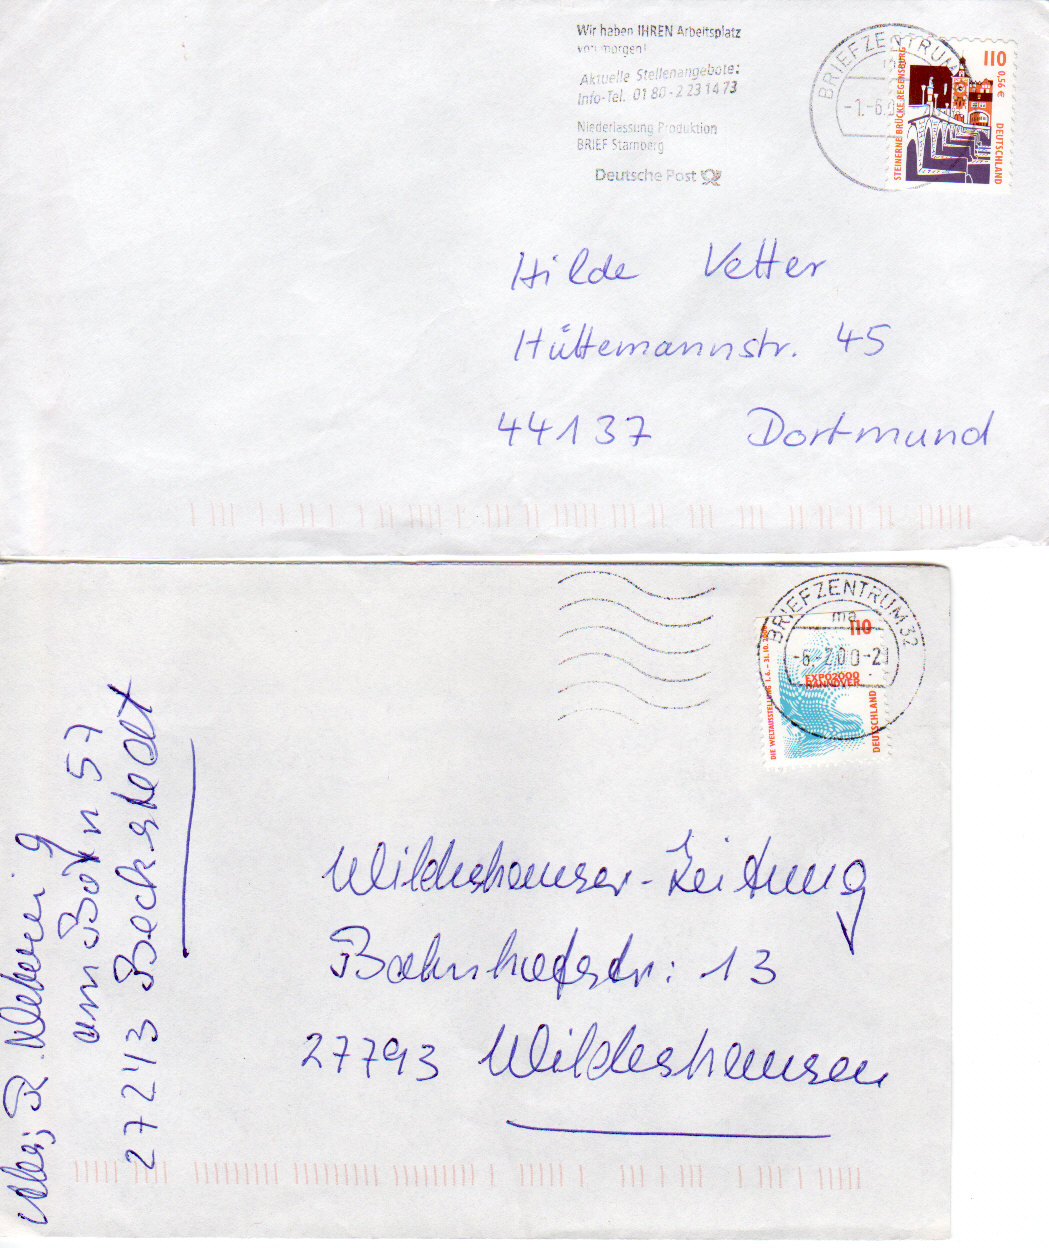 Wir haben IHREN Arbeitsplatz
von morgen!
Aktuelle Stellenangebote:
Info-Tel. 01 80 - 2 23 14 73
Niederlassung Produktion
BRIEF Starnberg
Deutsche Post
BRIEFZENTRUM
-1.-6.0
110
0,56 €
STEINERNE BRÜCKE REGENSBURG
DEUTSCHLAND
Hilde Vetter
Hüttemannstr. 45
44137 Dortmund
BRIEFZENTRUM 32
ma
-6.-7.00-21
110
DIE WELTAUSSTELLUNG 1.6. - 31.10.2000
EXPO2000
HANNOVER
DEUTSCHLAND
Wildeshauser-Zeitung
Bahnhofstr: 13
27793 Wildeshausen
Abs; R.
am Born 57
27243 Beckstedt